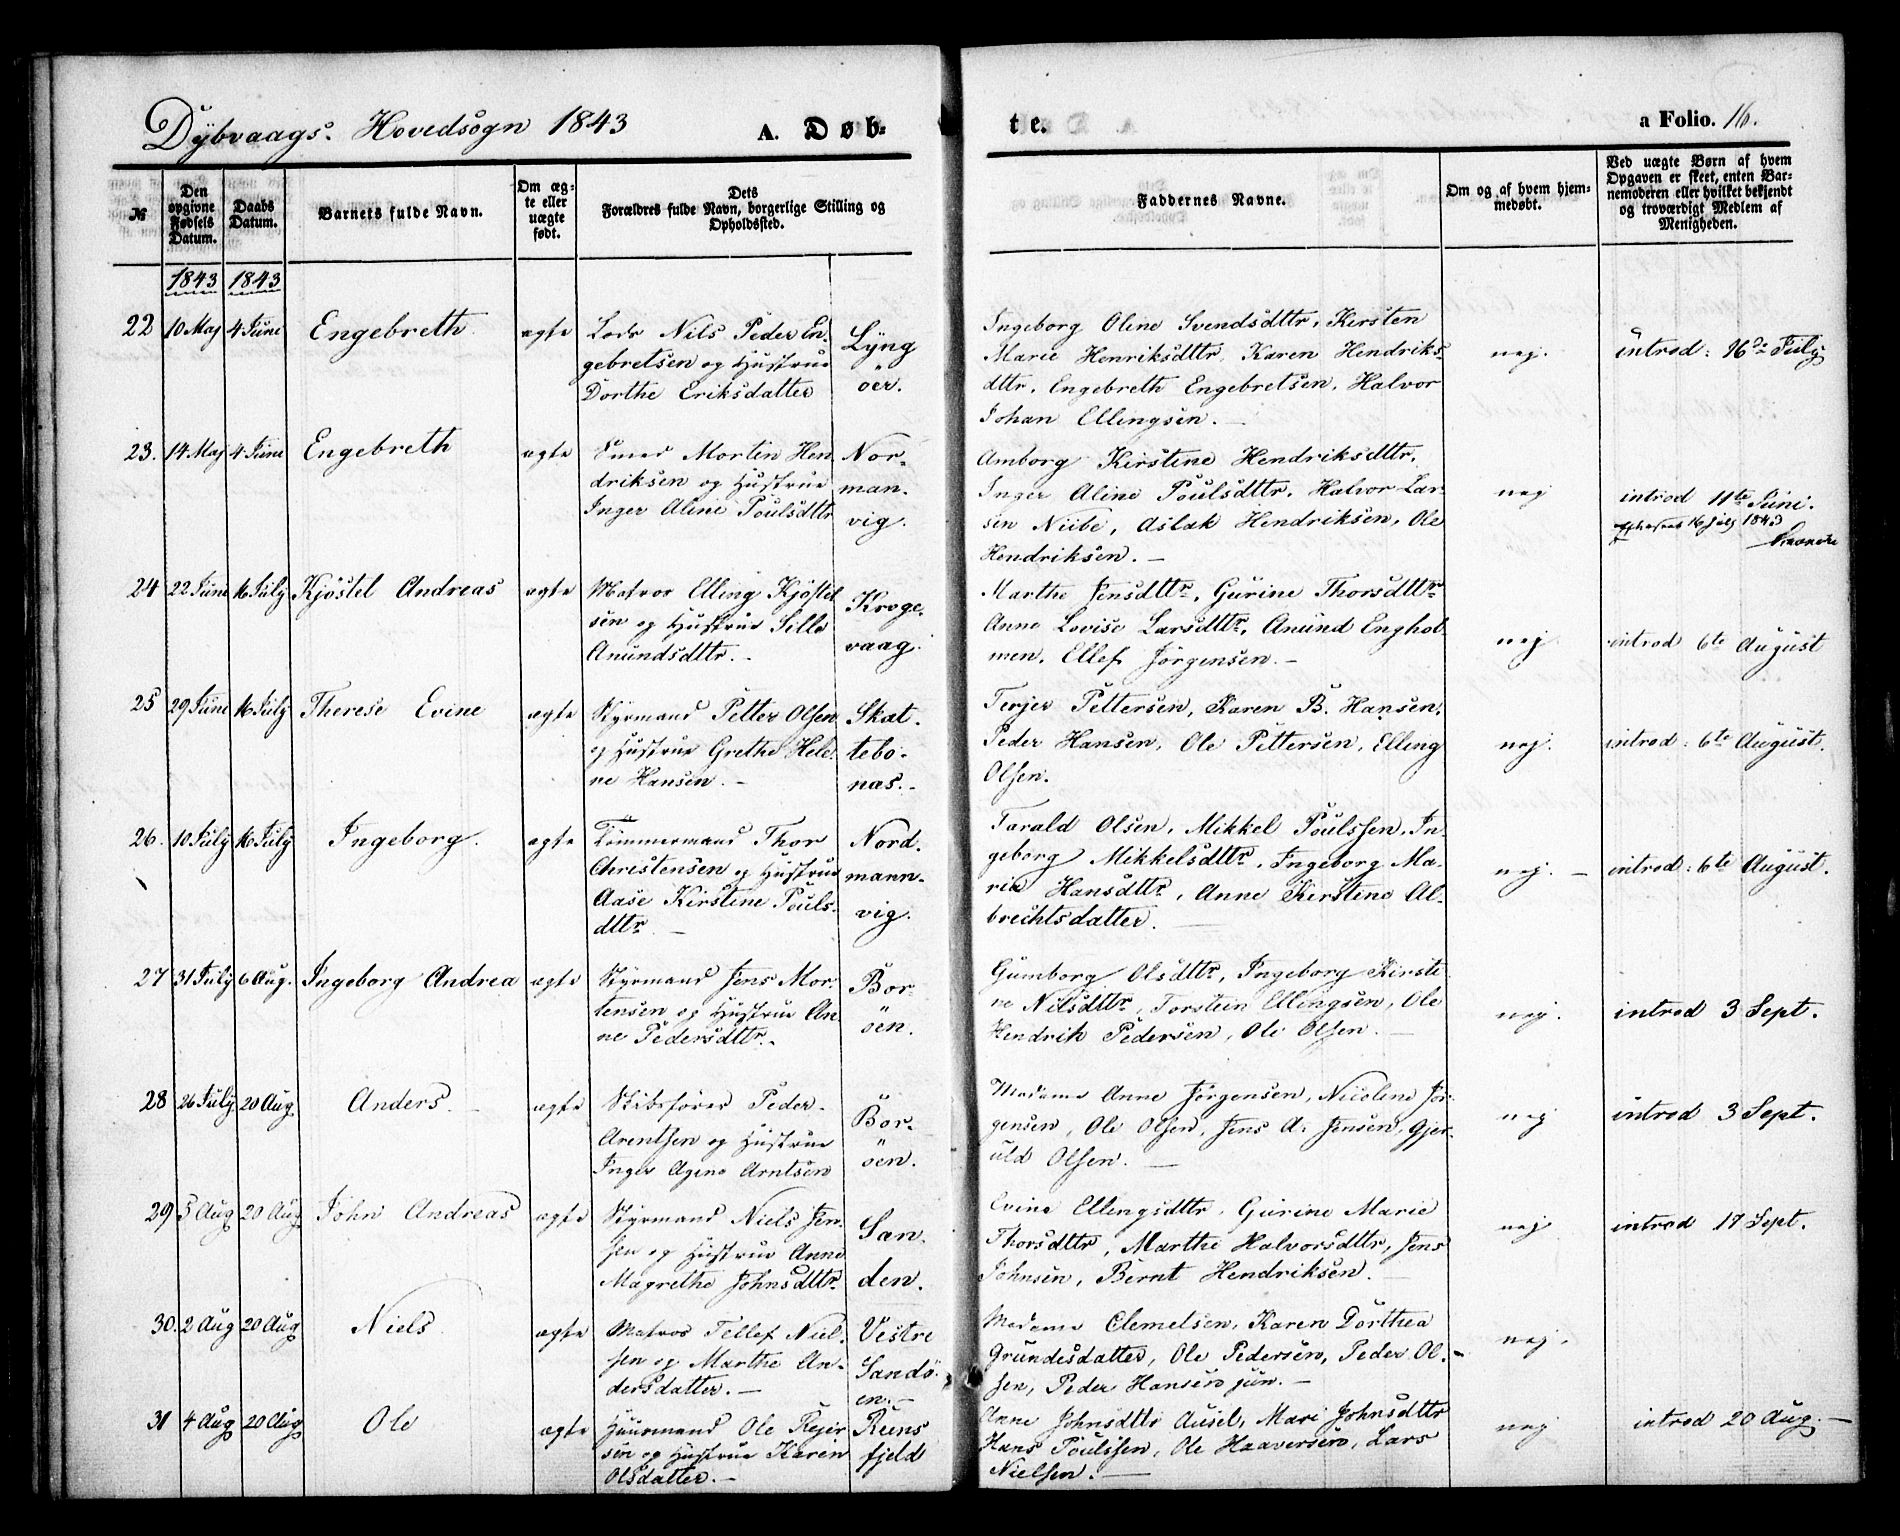 Dybvaags. Hovedsogn 1843 A. Døb-
te. a Folio. 16.
№
Den opgivne Fødsels Datum.
Daabs Datum.
Barnets fulde Navn.
Om ægte eller uægte født.
Dets Forældres fulde Navn, borgerlige Stilling og Opholdssted.
Faddernes Navne.
Om og af hvem hjemmedøbt.
Ved uægte Børn af hvem Opgaven er skeet, enten Barnemoderen eller hvilket bekjendt og troværdigt Medlem af Menigheden.
1843 1843
22 10 Maj 4 Juni Engebreth ægte
Lods Nils Peder En-
gebretsen og Hustrue
Dorthe Eriksdatter
Lyng
öer.
Ingeborg Oline Svendsdttr, Kirsten
Marie Henriksdttr, Karen Hendriks-
dttr, Engebreth Engebretsen, Halvor
Johan Ellingsen. -
nej. introd: 16de July
23. 14 Maj 4 Juni Engebreth ægte
Smed Morten Hen
driksen og Hustrue
Inger Aline Poulsdttr
Nor-
man-
vig.
Amborg Kirstine Hendriksdttr,
Inger Aline Poulsdttr, Halvor Lar-
sen Niibe, Aslak Hendriksen, Ole
Hendriksen. -
nej introd 11te Juni.
16 July 1843
24 22 Juni 16 July Kjöstel Andreas ægte
Matros Elling Kjöstel
sen og Hustrue Sille
Anundsdttr. -
Kroge-
vaag.
Marthe Jensdttr, Gurine Thorsdttr
Anne Lovise Larsdttr, Anund Enghol-
men, Ellef Jörgensen. -
nej introd 6te August
25 29 Juni 16 July Therese Evine ægte
Styrmand Petter Olsen
og Hustrue Grethe Hele-
ne Hansen. -
Skat-
tebo-
nas. -
Terjer Pettersen, Karen B. Hansen,
Peder Hansen, Ole Pettersen, Elling
Olsen.
nej. introd: 6te August.
26. 10 July 16 July Ingeborg. ægte
Tömmermand Thor
Christensen og Hustrue
Aase Kirstine Pouls-
dttr. -
Nord-
mann-
vig.
Tarald Olsen, Mikkel Poulssen, In-
geborg Mikkelsdttr, Ingeborg Ma-
rie Hansdttr, Anne Kirstine Al-
brechtsdatter. -
nej. - introd: 6te August.
27 31 July 6 Aug. Ingeborg Andrea ægte
Styrmand Jens Mor-
tensen og Hustrue An
ne Pedersdttr. -
Bor-
öen.
Gumborg Olsdttr, Ingeborg Kirsti-
ne Nilsdttr, Torstein Ellingsen, Ole
Hendrik Pedersen, Ole Olsen. -
nej. introd 3 Sept.
28 26 July 20 Aug Anders. ægte
Skibsförer Peder
Arentsen og Hustrue
Inger Agene Arntsen
Bor-
öen.
Madame Anne Jörgensen, Nicoline Jör-
gensen, Ole Olsen, Jens A. Jensen, Gjer-
uld Olsen. -
nej introd 3 Sept.
29 5 Aug 20 Aug John Andreas ægte
Styrmand Niels Jen-
sen og Hustrue Anne
Magrethe Johnsdttr.
San-
den.
Evine Ellingsdttr, Gurine Marie
Thorsdttr, Marthe Halvorsdttr, Jens
Johnsen, Bernt Hendriksen.
nej introd 17 Sept.
30. 2 Aug 20 Aug Niels ægte
Matros Tellef Niel-
sen og Marthe An-
dersdatter. -
Vestre
Sandö-
en. -
Madame Clemetsen, Karen Dorthea
Grundesdatter, Ole Pedersen, Peder Ol-
sen, Peder Hansen jun. -
nej.
31 4 Aug 20 Aug Ole ægte
Huusmand Ole Rejer
sen og Hustrue Karen
Olsdatter. -
Reens
fjeld
Anne Johnsdttr Ausel, Mari Johnsdttr
Hans Poulssen, Ole Haaversen, Lars
Nielsen. -
nej introd 20 Aug. -